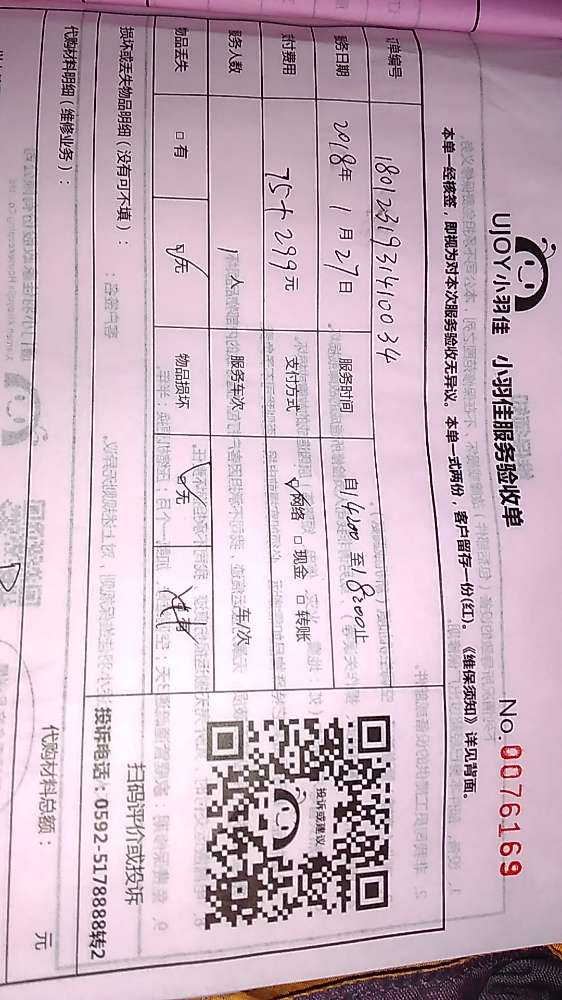 UJOY小羽佳 小羽佳服务验收单
No.0076169
本单一经核签，即视为对本次服务验收无异议。本单一式两份，客户留存一份(红)。《维保须知》详见背面。
单编号 1801231931410034
务日期 2018年1月27日 服务时间 自14:00至18:00止
付费用 75+299元 支付方式 ☑网络 □现金 □转账
务人数 1人 服务车次 车/次
物品丢失 □有 ☑无 物品损坏 ☑无
损坏或丢失物品明细（没有可不填）：
投诉或建议
扫码评价或投诉
投诉电话：0592-5178888转2
代购材料明细（维修业务）：
代购材料总额： 元